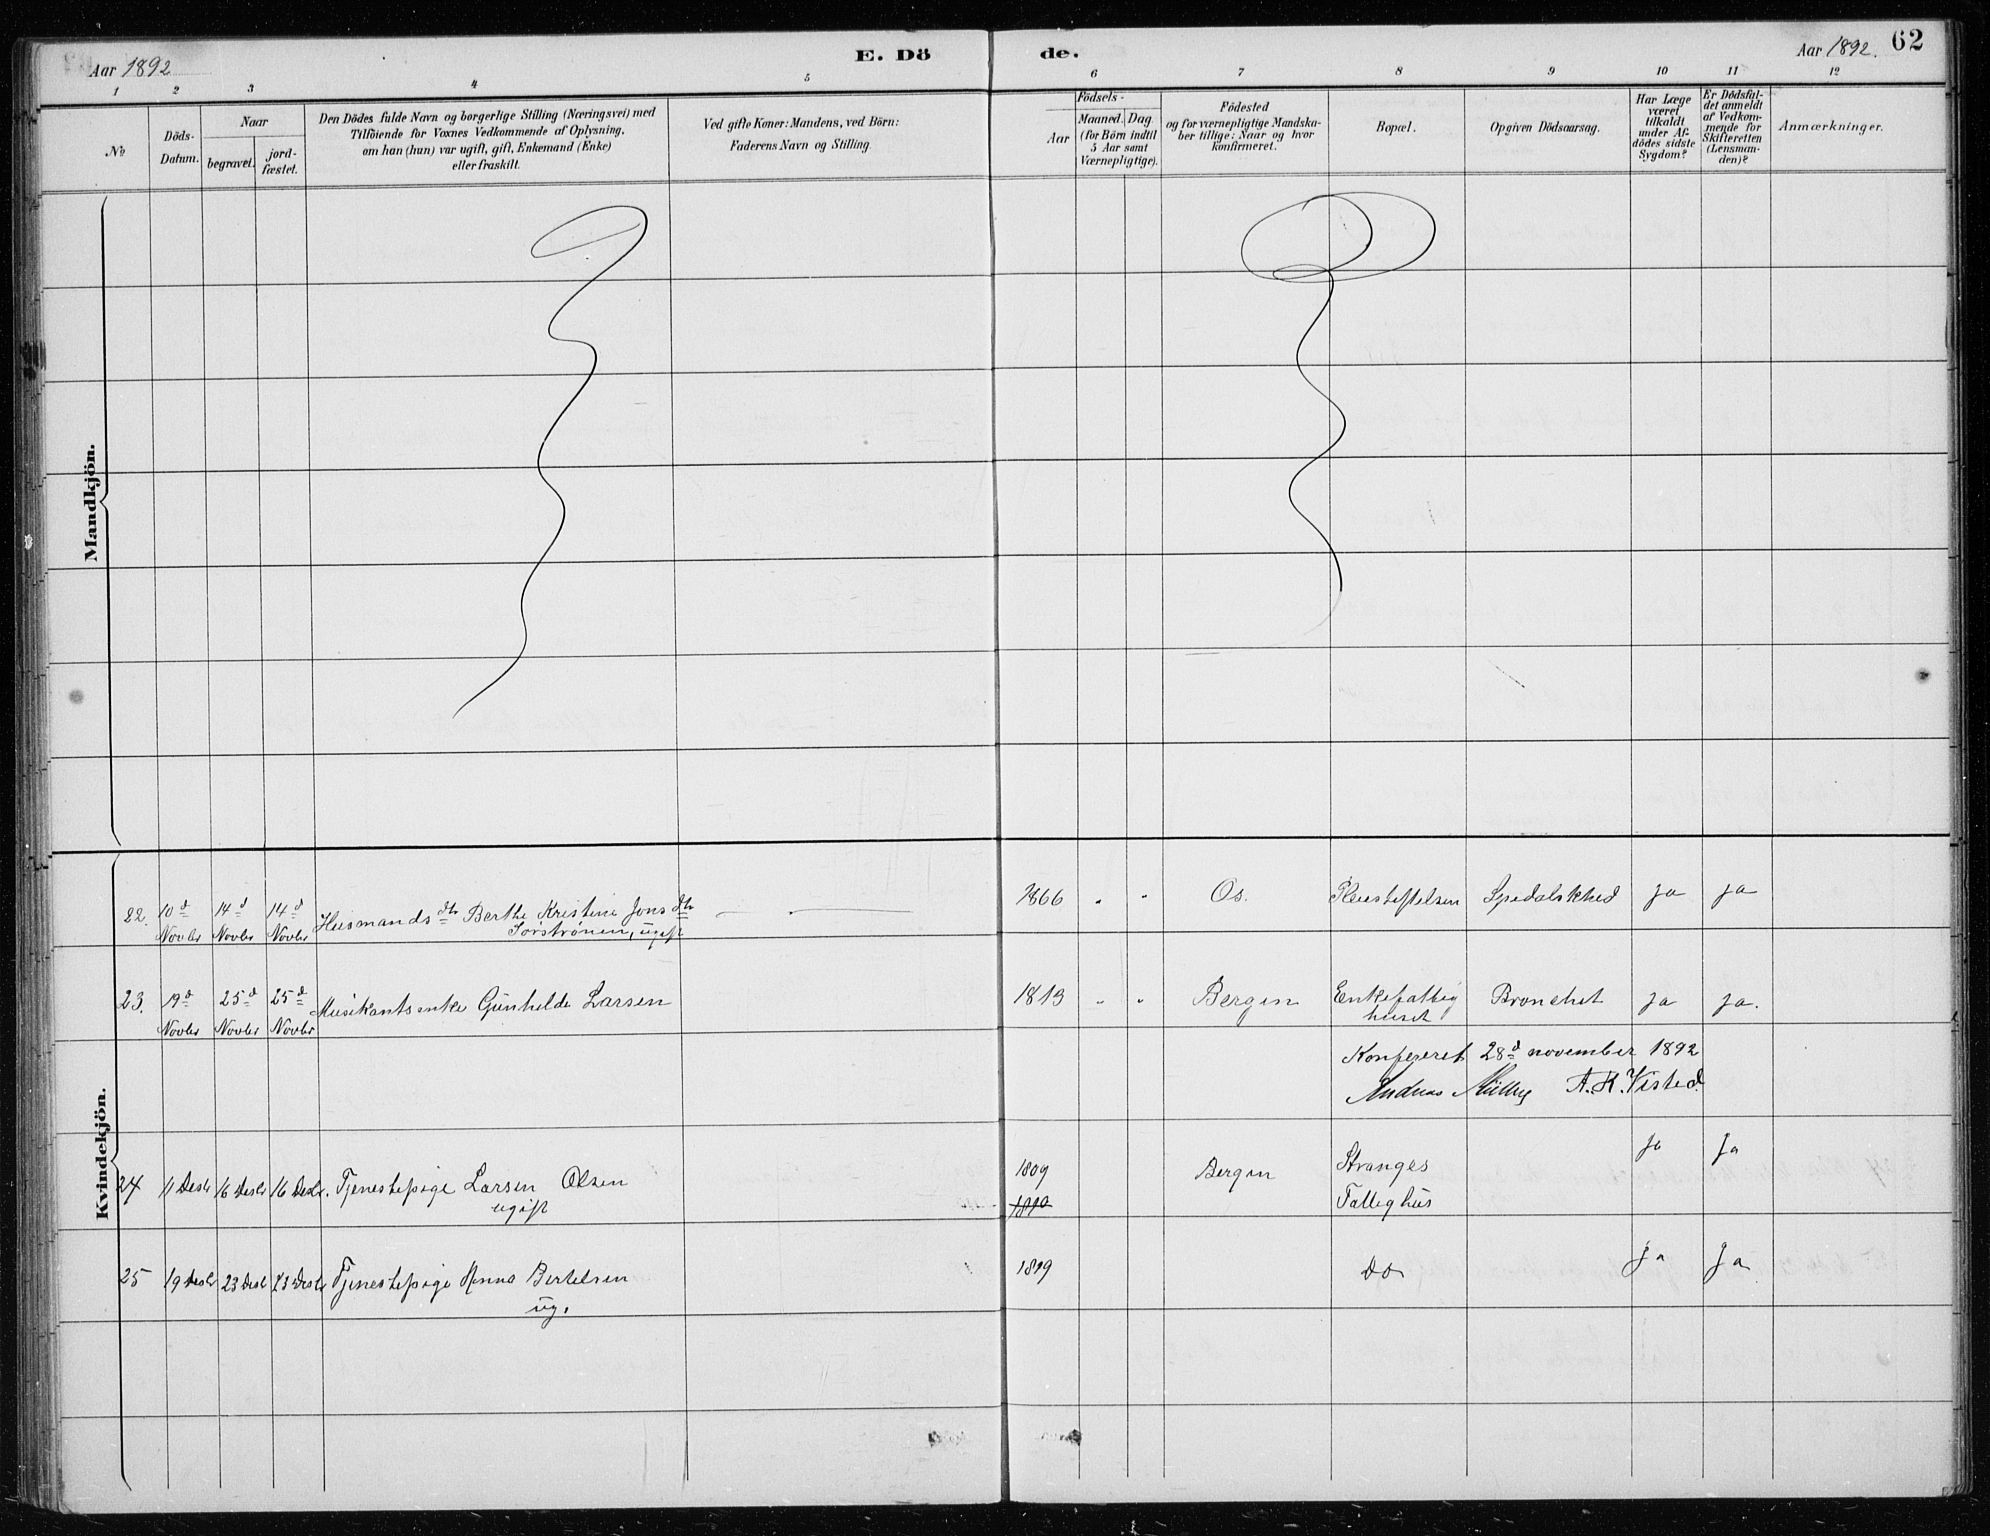 Aar 1892
E. Dö
de.
Aar 1892.
62
1 2 3 4 5 6 7 8 9 10 11 12
No
Döds-
Datum.
Naar
begravet.
jord-
fæstet.
Den Dödes fulde Navn og borgerlige Stilling (Næringsvei) med
Tilföiende for Voxnes Vedkommende af Oplysning,
om han (hun) var ugift, gift, Enkemand (Enke)
eller fraskilt.
Ved gifte Koner: Mandens, ved Börn:
Faderens Navn og Stilling.
Födsels-
Aar
Maaned. Dag
(for Börn indtil
5 Aar samt
Værnepligtige).
Födested
og for værnepligtige Mandska-
ber tillige: Naar og hvor
konfirmeret.
Bopæl.
Opgiven Dödsaarsag.
Har Læge
været
tilkaldt
under Af-
dödes sidste
Sygdom?
Er Dödsfal-
det anmeldt
af Vedkom-
mende for
Skifteretten
(Lensman-
den)?
Anmærkninger.
Mandkjön.
Kvindekjön.
22. 10d 14d 14d Husmandsdtr Berthe Kristine Jonsdtr 1866 " " Os. Pleiestiftelsen Spedalskhed ja ja
Novbr Novbr Novbr Sørstrønen, ugift
23. 19d 25d 25d Musikantsenke Gunhilde Larsen 1813 " " Bergen Enkefattig Bronchit ja ja.
Novbr Novbr Novbr huset
Konfereret 28d november 1892
Andreas A. K. Visted.
24 11 Desbr 16 Desbr 16 Desbr. Tjenestepige Larsen Olsen 1809 Bergen Stranges Ja Ja
ugift 1810 Fattighus
25 19 Desbr 23 Desbr 23 Desbr Tjenestepige Anna Bertelsen 1819 Do Ja Ja
ug.